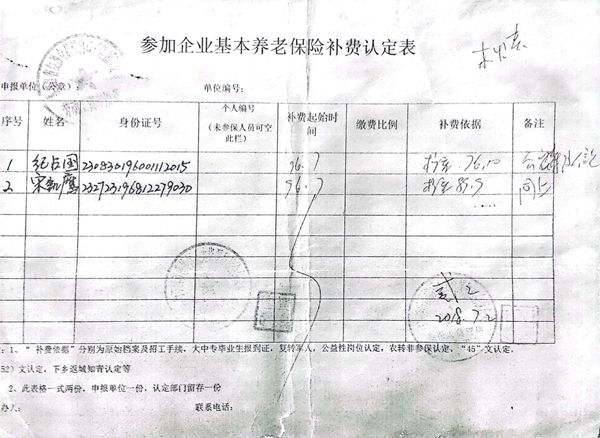 参加企业基本养老保险补费认定表
申报单位（公章）： 单位编号：
序号 姓名 身份证号 个人编号（未参保人员可空此栏） 补费起始时间 缴费比例 补费依据 备注
1 纪占国 230830196001112015 96.7
2 232723196812279030 96.7 同上
贰人
2018.7.2
：1、“补费依据”分别为原始档案及招工手续，大中专毕业生报到证，复转军人，公益性岗位认定，农转非参保认定，“45”文认定.
52）文认定，下乡返城知青认定等
2、此表格一式两份，申报单位一份，认定部门留存一份
办人： 联系电话：